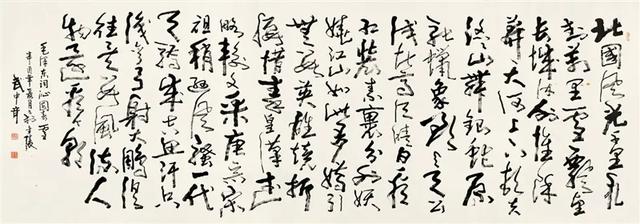 北國風光千里冰
封萬里雪飄望
長城內外惟餘
莽莽大河上下頓失
滔滔山舞銀蛇原
馳蠟象欲與天公
試比高須晴日看
紅裝素裹分外妖
嬈江山如此多嬌引
無數英雄競折
腰惜秦皇漢武
略輸文采唐宗宋
祖稍遜風騷一代
天驕成吉思汗只
識彎弓射大鵰俱
往矣數風流人
物還看今朝
毛澤東詞沁園春雪
辛酉年夏月於金陵
武中奇